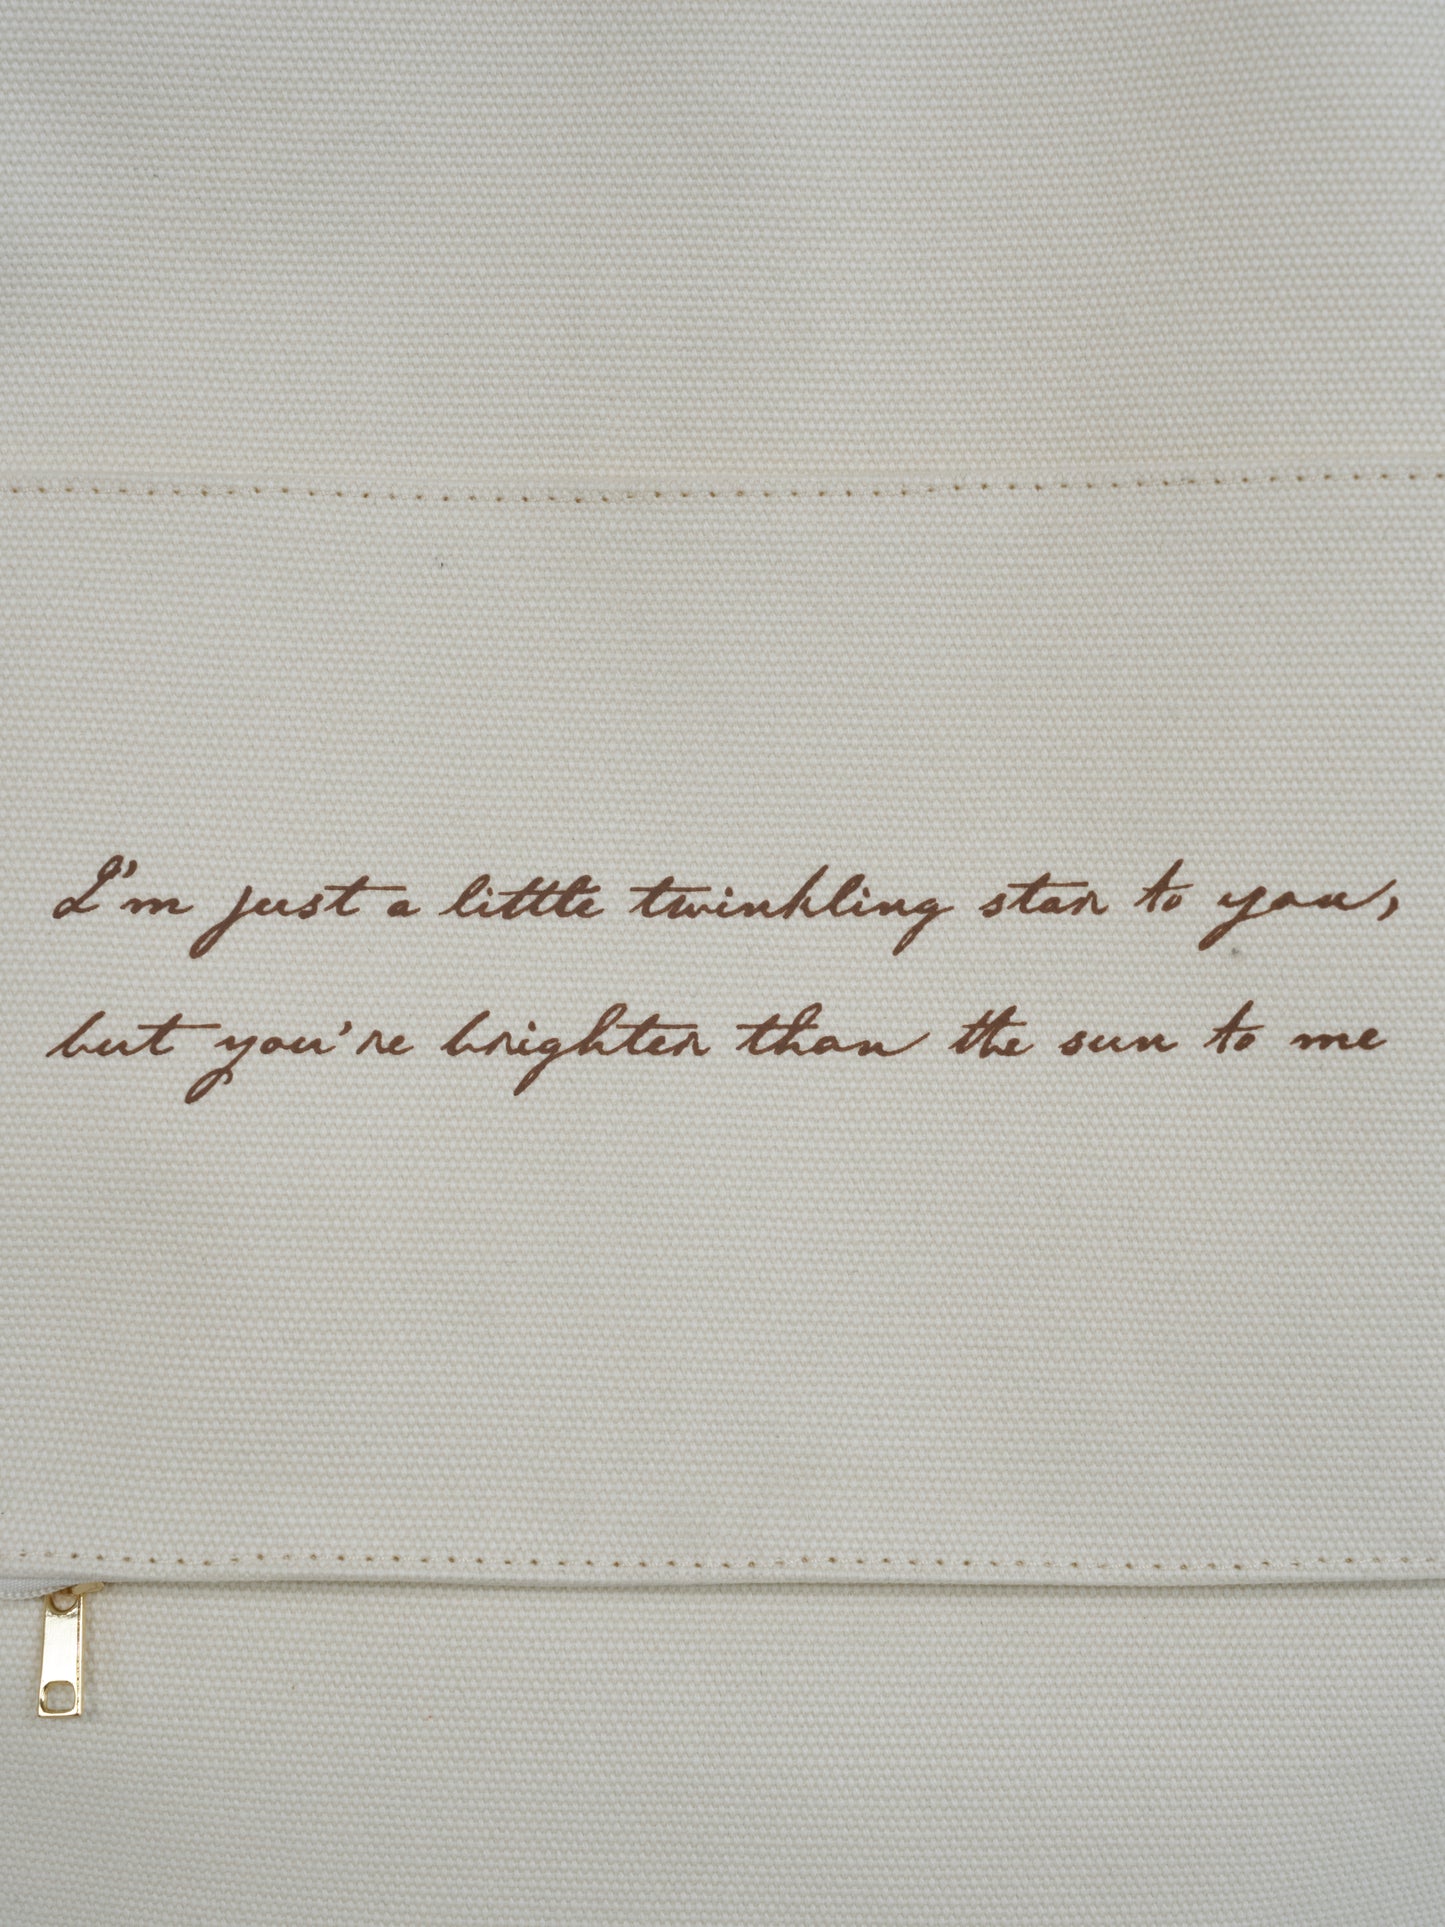 I'm just a little twinkling star to you,
but you're brighter than the sun to me